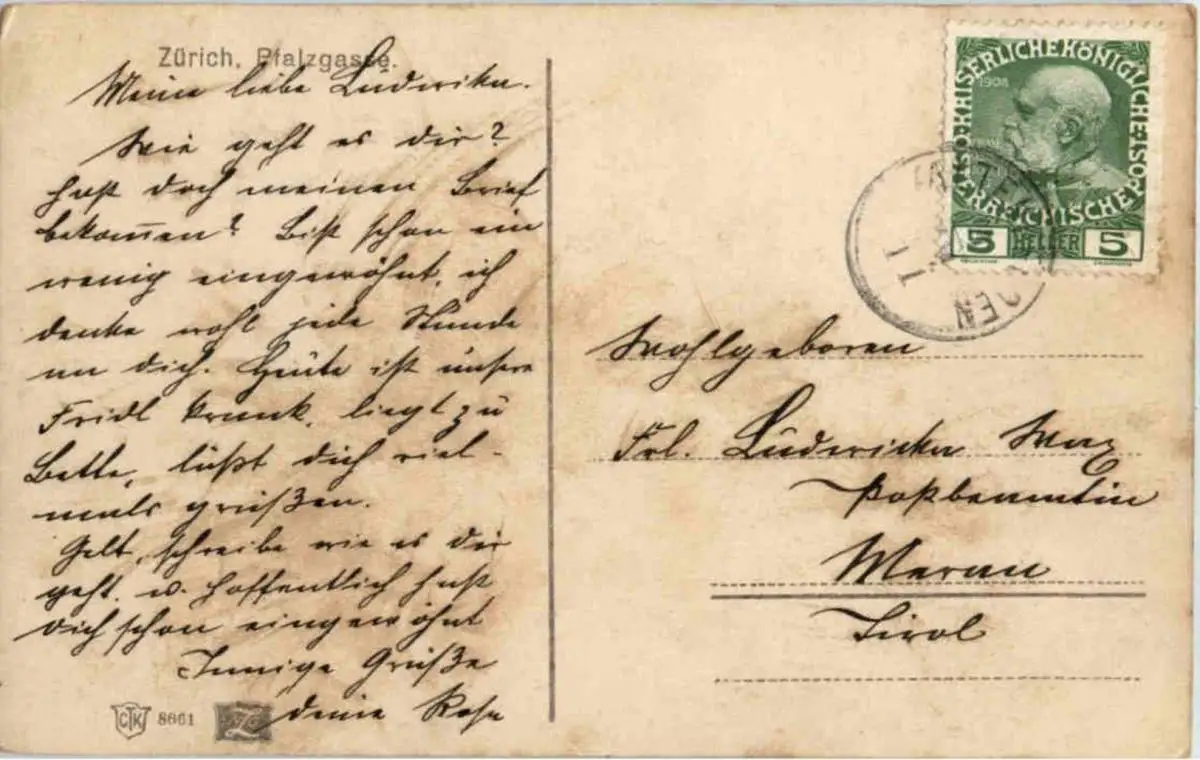 Zürich, Pfalzgasse.
Meine liebe Ludwika.
Wie geht es dir?
hast doch meinen Brief
bekom̄en? Bist schon ein
wenig eingewöhnt, ich
denke wohl jede Stunde
an dich. Heute ist unsere
Fridl krank, liegt zu
Bette, läßt dich viel-
mals grüßen.
Gelt, schreibe wie es dir
geht. u. hoffentlich hast
dich schon eingewöhnt
Innige Grüße
deine Rosa
CTK 8661
KAISERLICHE KÖNIGLICHE ÖSTERREICHISCHE POST
1908
5 HELLER 5
Wohlgeboren
Frl. Ludwicka
Postbeamtin
Meran
Tirol